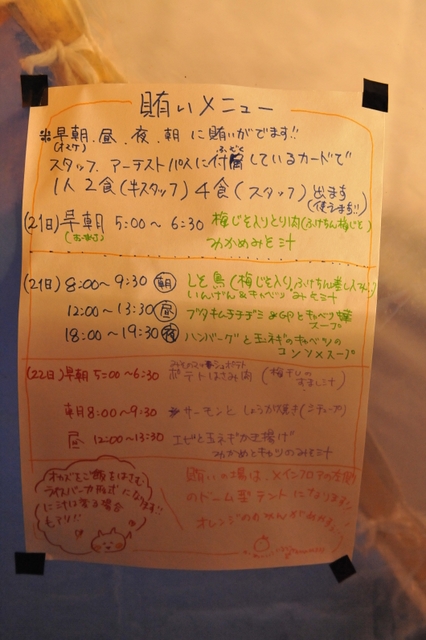 賄いメニュー
※早朝、昼、夜、朝 に賄いがでます!!
(オマケ)
スタッフ、アーテストパスに付属しているカードで
ふぞく
1人 2食(半スタッフ) 4食(スタッフ) 出ます
(使えます!!)
(21日) 早朝 5:00〜 6:30 梅じそ入りとり肉
(おまけ) わかめみそ汁
(21日) 8:00〜 9:30 朝 しそ鳥(梅じそ入り
いんげん&キャベツ みそ汁
12:00〜 13:30 昼 ブタキムチチヂミ
スープ
18:00〜 19:30 夜 ハンバーグと玉ネギのキャベツの
コンソメスープ
(22日) 早朝 5:00〜6:30 ポテトはさみ肉 (梅干しの
すまし汁)
朝 8:00〜9:30 サーモンと しょうが焼き
昼 12:00〜13:30 エビと玉ネギかき揚げ
わかめとキャベツのみそ汁
おかずをご飯をはさむ
ライスバーガー形式になります!!
に汁は寒る場合
もアリ!!
賄いの場は、メインフロアの
のドーム型テントになります。
オレンジの